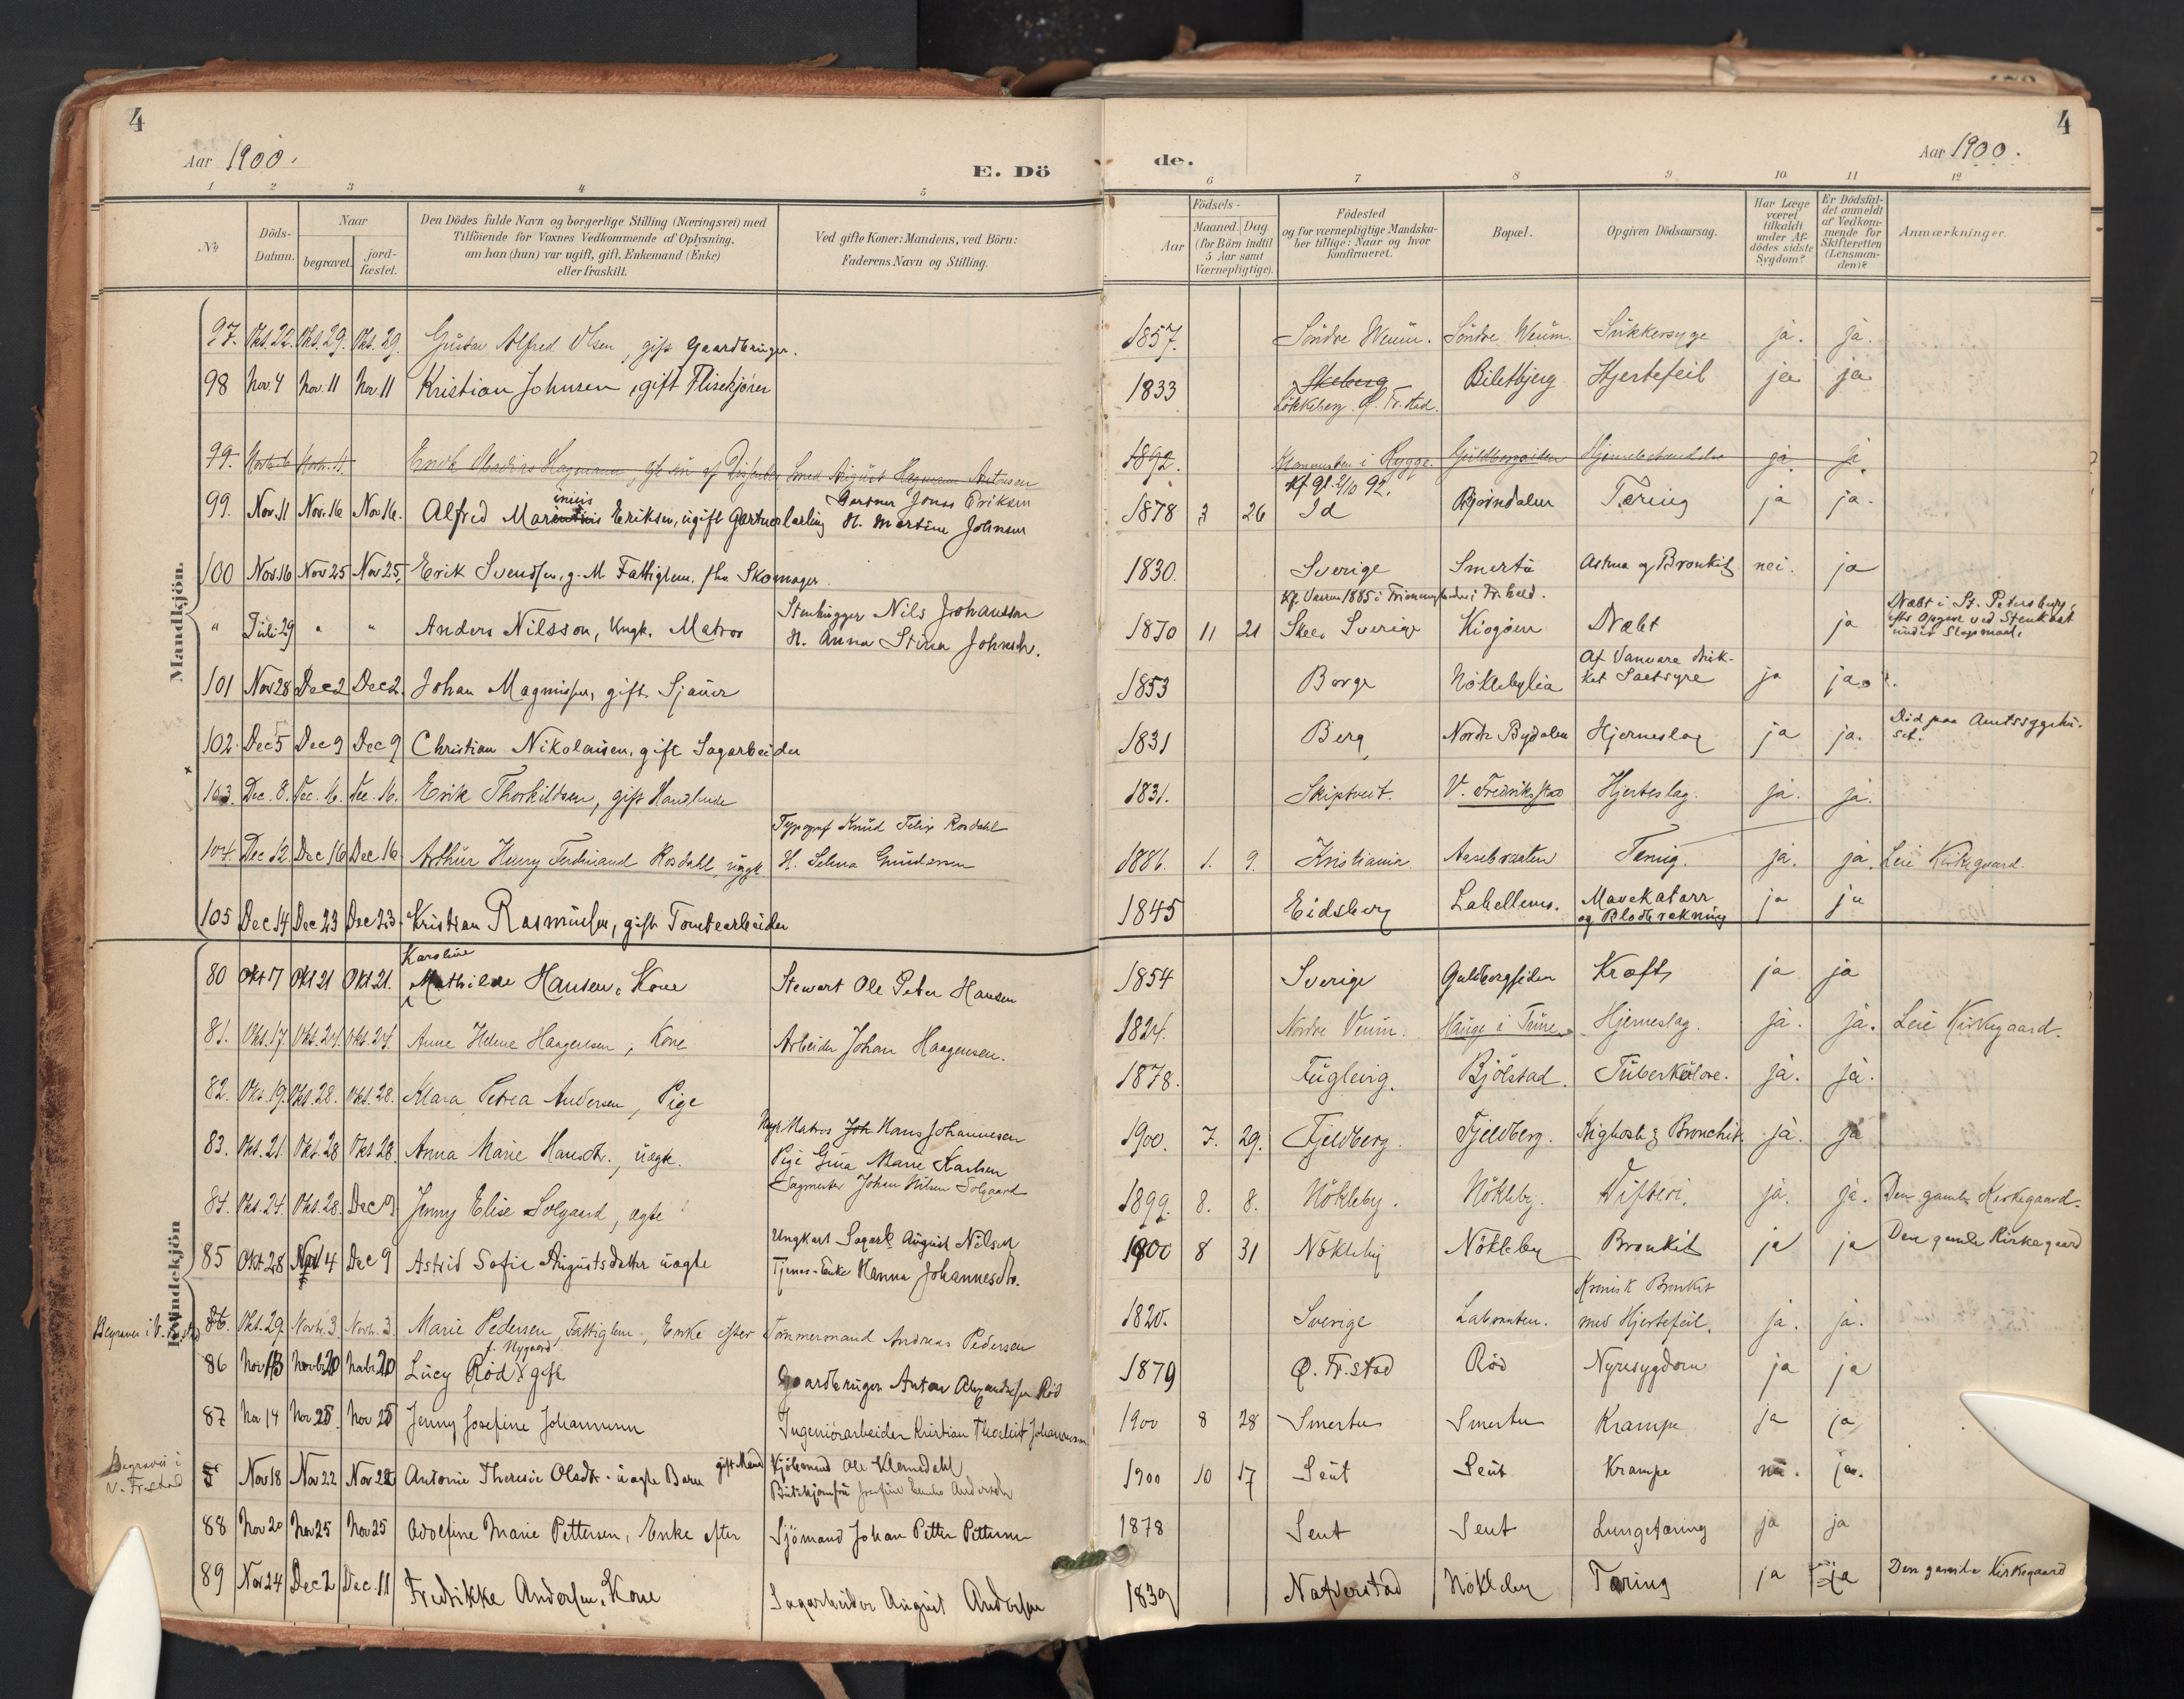 4
Aar 1900.
E. Dö
de.
4
Aar 1900.
1 2 3 4 5 6 7 8 9 10 11 12
No
Döds-Datum.
Naar
begravet.
jord-fæstet.
Den Dödes fulde Navn og borgerlige Stilling (Næringsvei) med
Tilföiende for Voxnes Vedkommende af Oplysning,
om han (hun) var ugift, gift, Enkemand (Enke)
eller fraskilt.
Ved gifte Koner: Mandens, ved Börn:
Faderens Navn og Stilling.
Födsels-
Aar
Maaned. Dag.
(for Börn indtil
5 Aar samt
Værnepligtige).
Födested
og for værnepligtige Mandska-
ber tillige: Naar og hvor
Konfirmeret.
Bopæl.
Opgiven Dödsaarsag.
Har Læge
været
tilkaldt
under Af-
dödes sidste
Sygdom?
Er Dödsfal-
det anmeldt
af Vedkom-
mende for
Skifteretten
(Lensman-
den)?
Anmærkninger.
Mandkjön.
97. Okt. 22. Okt. 29. Okt. 29. Gustav Alfred Olsen, gift Gaardbruger. 1857. Söndre Veum. Söndre Veum. Sukkersyge ja. ja.
98 Nov. 4 Nov. 11 Nov 11 Kristian Johnsen, gift Flisekjører 1833 Skeberg Lökkeberg Ø. Fr.stad. Biletbjerg Hjertefeil ja ja
99. 1892. i Rygge. Guldbergsiden ja
99. Nov. 11 Nov. 16 Nov 16. Alfred Marinius Eriksen, ugift Gartnerlærling Gartner Jonas Eriksen
H. Martine Johnsen 1878 3 26 Kf Gl. 2/10 92. Id Bjørndalen Tæring ja ja.
100 Nov. 16 Nov 25 Nov 25, Erik Svendsen, g. M. Fattiglem. fhv Skomager. 1830. Sverige Smertu Astma og Bronkit nei. ja
" Juli 29 " " Anders Nilsson, Ungk. Matros Stenhugger Nils Johansson
H. Anna Stina Johnsdtr. 1870 11 21 Skee Sverige Kiogøen Dræbt ja Dræbt i St. Petersburg,
efter Opgave ved Stenkast
under Slagsmaal.
101 Nov 28 Dec 2 Dec 2. Johan Magnussen, gift Sjauer 1853 Borge Nöklebylia Af Vanvare druk-
ket Saltsyre ja ja.
102. Dec 5 Dec 9 Dec 9 Christian Nikolaisen, gift Sagarbeider 1831 Berg Nordre Bydalen Hjerneslag ja ja. Död paa Amtssygehu-
set.
103. Dec. 8. Dec. 16. Dec. 16. Erik Thorkildsen, gift Handlende 1831. Skiptveit. V. Fredriksstad Hjerteslag. ja. ja.
104. Dec 12 Dec 16 Dec 16 Arthur Henry Ferdinand Rosdahl, ungk. Typograf Knud Felix Rosdahl
H. Selma Gundersen 1886. 1. 9. Kristiania Aasebraaten Tæring. ja. ja. Leie Kirkegaard.
105 Dec 14 Dec 23 Dec 23. Kristian Rasmussen, gift Tomtearbeider 1845 Eidsberg Labellens. Mavekatarr
og Blodbrækning ja ja
Kvindekjön
80 Okt 17 Okt 21 Okt 21. Karoline
Mathilde Hansen, Kone Stewart Ole Peter Hansen 1854 Sverige Guldbergsiden Kræft ja ja
81. Okt. 17. Okt. 24. Okt. 24. Anne Helene Haagensen, Kone Arbeider Johan Haagensen. 1824. Nordre Veum. Hauge i Tune Hjerneslag. ja. ja. Leie Kirkegaard.
82. Okt. 19. Okt. 28. Okt. 28. Klara Petrea Andersen, Pige 1878. Fuglevig. Bjölstad. Tuberkulose. ja. ja.
83. Okt. 21. Okt. 28 Okt 28. Anna Marie Hansdtr., uægte. Matros Joh Hans Johannesen
Pige Gina Marie Karlsen 1900. 7. 29. Fjeldberg. Fjeldberg. Kighoste & Bronchit ja. ja
84. Okt. 24. Okt. 28. Dec 9 Jenny Elise Solgaard, ægte Sagmester Johan Nilsen Solgaard 1899. 8. 8. Nökleby. Nökleby. Difteri. ja. ja. Den gamle Kirkegaard.
85 Okt 28 Nov 4 Dec 9 Astrid Sofie Augustsdatter uægte Ungkarl Sagarb. August Nilsen
Tjenes-Enke Hanna Johannesdtr. 1900 8 31 Nökleby Nökleby Bronkit ja ja Den gamle Kirkegaard
Begraves i V. Fr.stad 86. Okt. 29. Novbr. 3 Novbr. 3. Marie Pedersen, Fattiglem, Enke efter Tømmermand Andreas Pedersen 1820. Sverige Labraaten. Kronisk Bronkit
med Hjertefeil. ja. ja.
86 Nov 13 Novbr. 20 Novbr 20 Lucy Rød f. Nygaard gift Gaardbruger Anton Rød 1879 Ø. Fr.stad Rød Nyresygdom ja ja
87 Nov 14 Nov 25. Nov 25 Jenny Josefine Johannesen Ingeniörarbeider Kristian Johannesen 1900 8 28 Smertu Smertu Krampe ja ja
Begraves i
V. Frstad Nov 18 Nov 22 Nov 22 Antonie Theresie Olsdtr. uægte Barn gift Mand Kjöbmand Ole Klemedahl
1900 10 17 Seut Seut Krampe ja.
88 Nov 20 Nov 25 Nov 25 Adolfine Marie Pettersen, Enke efter Sjömand Johan Petter Pettersen 1878 Seut Seut Lungetæring ja ja
89 Nov 24 Dec 2 Dec. 11 Fredrikke Andersen, Kone Sagarbeider August Andersen 1839 Nafverstad Nökleby Tæring ja ja Den gamle Kirkegaard